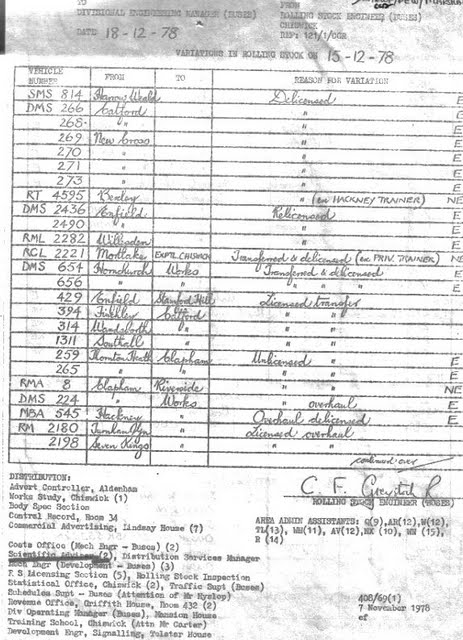 TO
DIVISIONAL ENGINEERING MANAGER (BUSES)
DATE 18-12-78
FROM
ROLLING STOCK ENGINEER (BUSES)
CHISWICK
REF: 121/1/OGR
VARIATIONS IN ROLLING STOCK ON 15-12-78
VEHICLE NUMBER FROM TO REASON FOR VARIATION
SMS 814 Harrow Weald Delicensed E
DMS 266 Catford " E
268 " " E
269 New Cross " E
270 " " E
271 " " E
273 " " E
RT 4595 Bexley " (ex HACKNEY TRAINER) NE
DMS 2436 Enfield Relicensed E
2490 " " E
RML 2282 Willesden "
RCL 2221 Mortlake EXPTL CHISWICK Transferred & delicensed (ex PRIV. TRAINER) NE
DMS 654 Hornchurch Works Transferred & delicensed E
656 " " " " " E
429 Enfield Stamford Hill Licensed transfer E
394 Finchley Catford " " E
314 Wandsworth " " " E
1311 Southall " " " E
259 Thornton Heath Clapham Unlicensed " E
265 " " " " E
RMA 8 Clapham Riverside " " NE
DMS 224 " Works " overhaul E
MBA 545 Hackney " Overhaul delicensed E
RM 2180 Turnham Grn " Licensed overhaul
2198 Seven Kings " " "
continued over
DISTRIBUTION:
Advert Controller, Aldenham
Works Study, Chiswick (1)
Body Spec Section
Control Record, Room 34
Commercial Advertising, Lindsay House (7)
ROLLING STOCK ENGINEER (BUSES)
AREA ADMIN ASSISTANTS: Q(9), AR(12), W(12),
TL(13), WH(11), AV(12), HX (10), WN (15),
R (14)
Costs Office (Mech Engr - Buses) (2)
Scientific Adviser (2), Distribution Services Manager
Mech Engr (Development - Buses) (3)
F.S Licensing Section (5), Rolling Stock Inspection
Statistical Office, Chiswick (2), Traffic Supt (Buses)
Schedules Supt - Buses (Attention of Mr Hyslop)
Revenue Office, Griffith House, Room 432 (2)
Div Operating Manager (Buses), Mansion House
Training School, Chiswick (Attn Mr Carter)
Development Engr, Signalling, Telstar House
408/69(1)
7 November 1978
ef